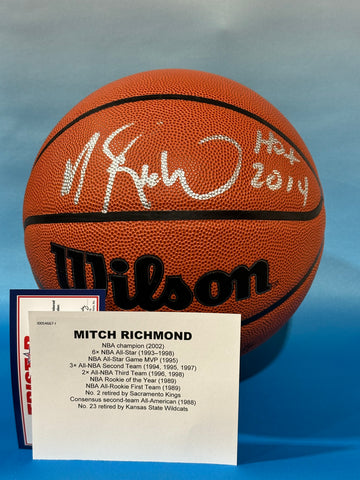 M Richmond HOF
2014
Wilson
TRISTAR
MITCH RICHMOND
NBA champion (2002)
6× NBA All-Star (1993–1998)
NBA All-Star Game MVP (1995)
3× All-NBA Second Team (1994, 1995, 1997)
2× All-NBA Third Team (1996, 1998)
NBA Rookie of the Year (1989)
NBA All-Rookie First Team (1989)
No. 2 retired by Sacramento Kings
Consensus second-team All-American (1988)
No. 23 retired by Kansas State Wildcats